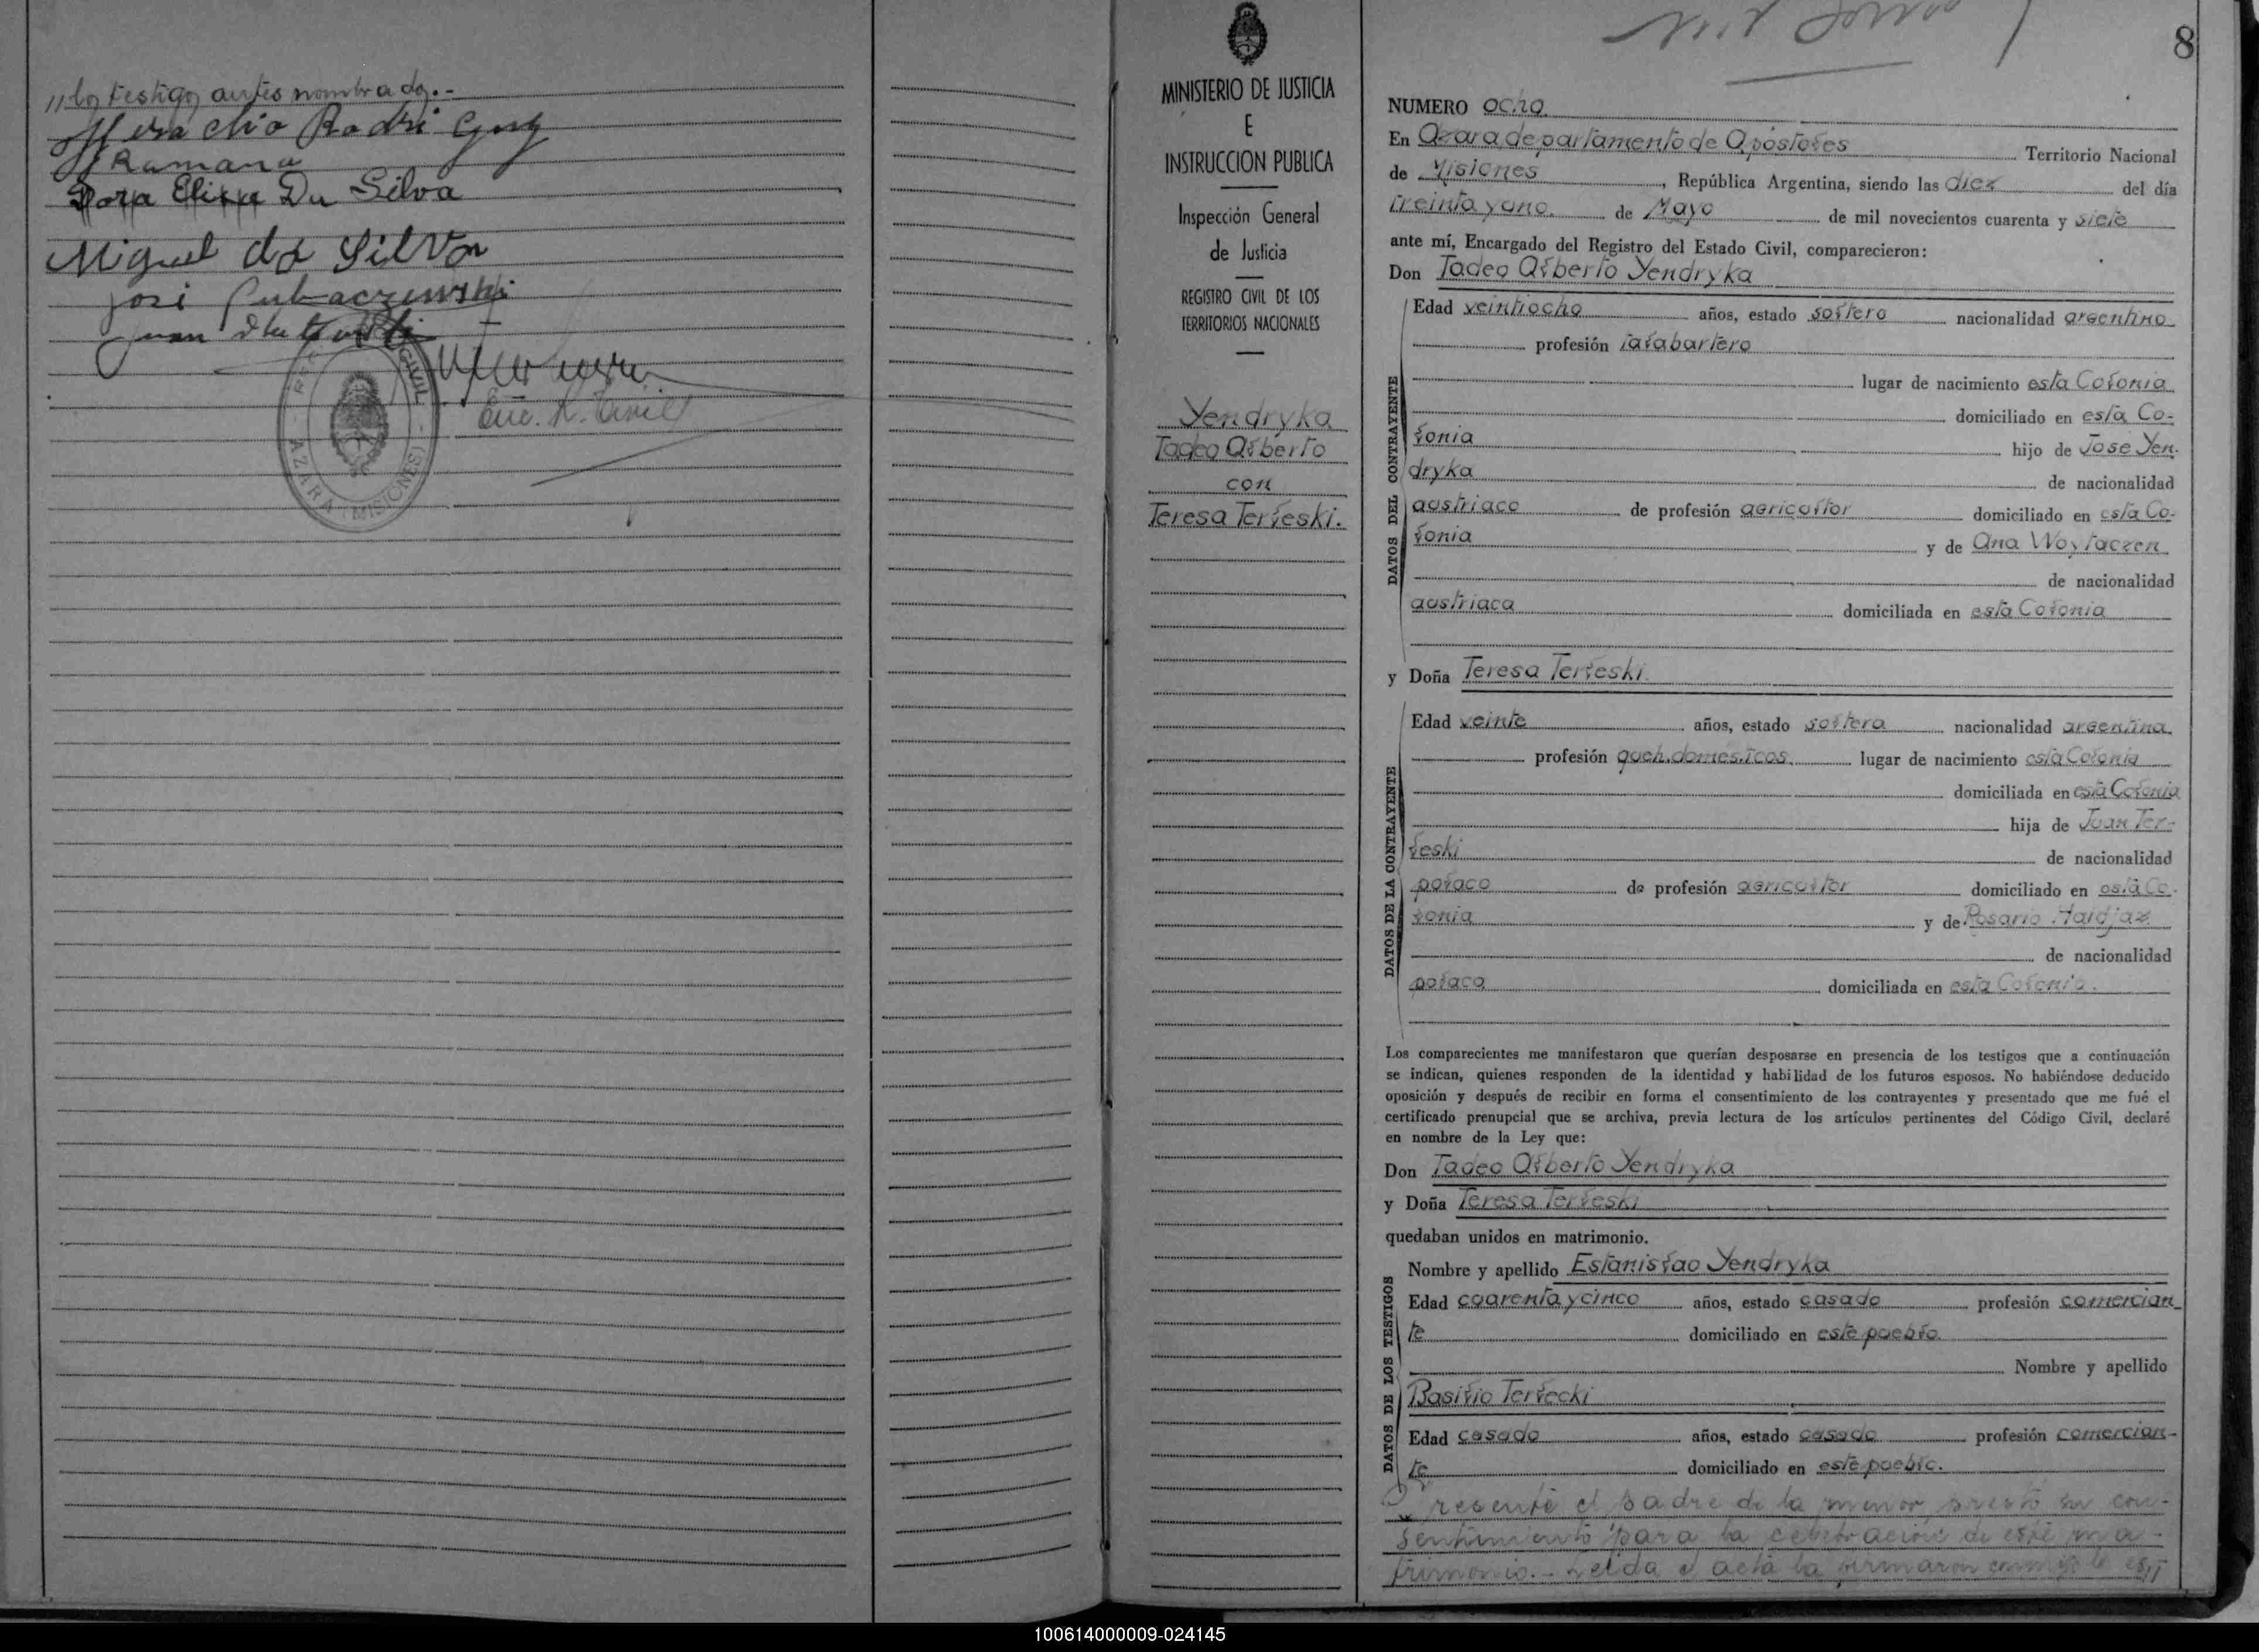 //los testigos antes nombrados.-
Dora Elisa Da Silva
Miguel da Silva
José
Juan
Enc. R. Civil
CIVIL
AZARA (MISIONES)
MINISTERIO DE JUSTICIA
E
INSTRUCCION PUBLICA
Inspección General
de Justicia
REGISTRO CIVIL DE LOS
TERRITORIOS NACIONALES
Yendryka
Tadeo Alberto
con
Teresa Terleski.
8
NUMERO ocho.
En Azara departamento de Apóstoles Territorio Nacional
de Misiones, República Argentina, siendo las diez del día
treinta y uno. de Mayo de mil novecientos cuarenta y siete
ante mí, Encargado del Registro del Estado Civil, comparecieron:
Don Tadeo Alberto Yendryka
DATOS DEL CONTRAYENTE
Edad veintiocho años, estado soltero nacionalidad argentino
profesión talabartero
lugar de nacimiento esta Colonia
domiciliado en esta Co-
lonia hijo de Jose Yen-
dryka de nacionalidad
austriaco de profesión agricultor domiciliado en esta Co-
lonia y de Ana Woytaczen
de nacionalidad
austriaca domiciliada en esta Colonia
y Doña Teresa Terleski
DATOS DE LA CONTRAYENTE
Edad veinte años, estado soltera nacionalidad argentina.
profesión queh. domésticos. lugar de nacimiento esta Colonia
domiciliada en esta Colonia
hija de Juan Ter-
leski de nacionalidad
polaco de profesión agricultor domiciliado en esta Co-
lonia y de Rosario Haidjaz
de nacionalidad
polaca domiciliada en esta Colonia.
Los comparecientes me manifestaron que querían desposarse en presencia de los testigos que a continuación
se indican, quienes responden de la identidad y habilidad de los futuros esposos. No habiéndose deducido
oposición y después de recibir en forma el consentimiento de los contrayentes y presentado que me fué el
certificado prenupcial que se archiva, previa lectura de los artículos pertinentes del Código Civil, declaré
en nombre de la Ley que:
Don Tadeo Alberto Yendryka
y Doña Teresa Terleski
quedaban unidos en matrimonio.
DATOS DE LOS TESTIGOS
Nombre y apellido Estanislao Yendryka
Edad cuarenta y cinco años, estado casado profesión comercian-
te domiciliado en este pueblo.
Nombre y apellido
Basilio Terlecki
Edad casado años, estado casado profesión comercian-
te domiciliado en este pueblo.
Presente el padre de la menor prestó su con-
sentimiento para la celebración de este ma-
trimonio.- Leida el acta la firmaron conmigo
100614000009-024145